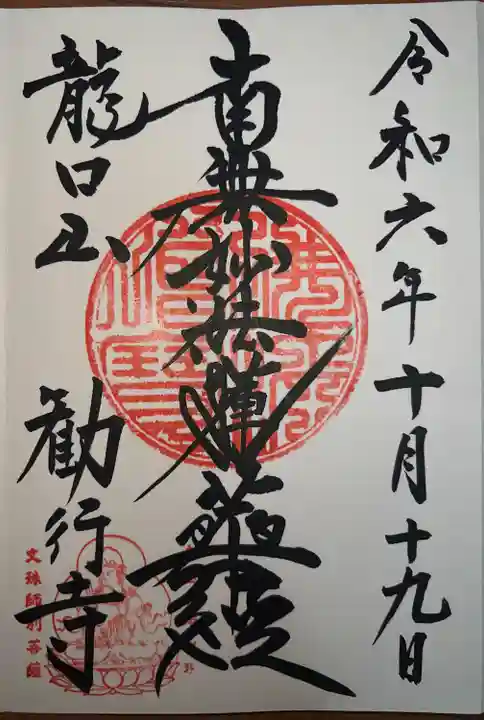 令和六年十月十九日
南無妙法蓮華経
龍口山 勧行寺
文殊師利菩薩